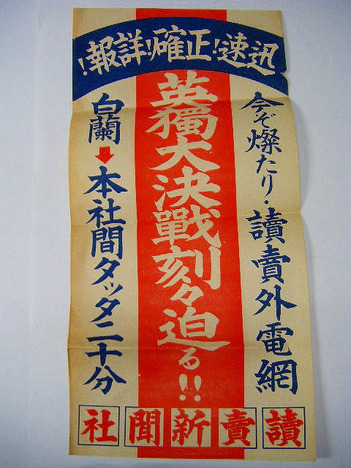 迅速!正確!詳報!
今ぞ燦たり・讀賣外電網
英獨大決戰刻々迫る!!
白蘭➡本社間タッタ二十分
讀賣新聞社